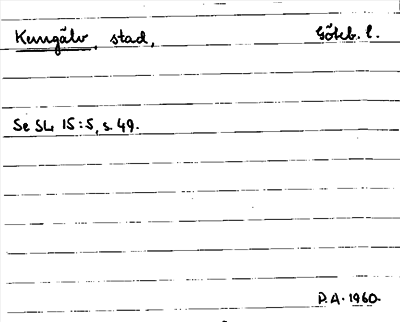 Kungälv, stad, Göteb. l.
Se SL 15:5, s. 49.
P.A. 1960.